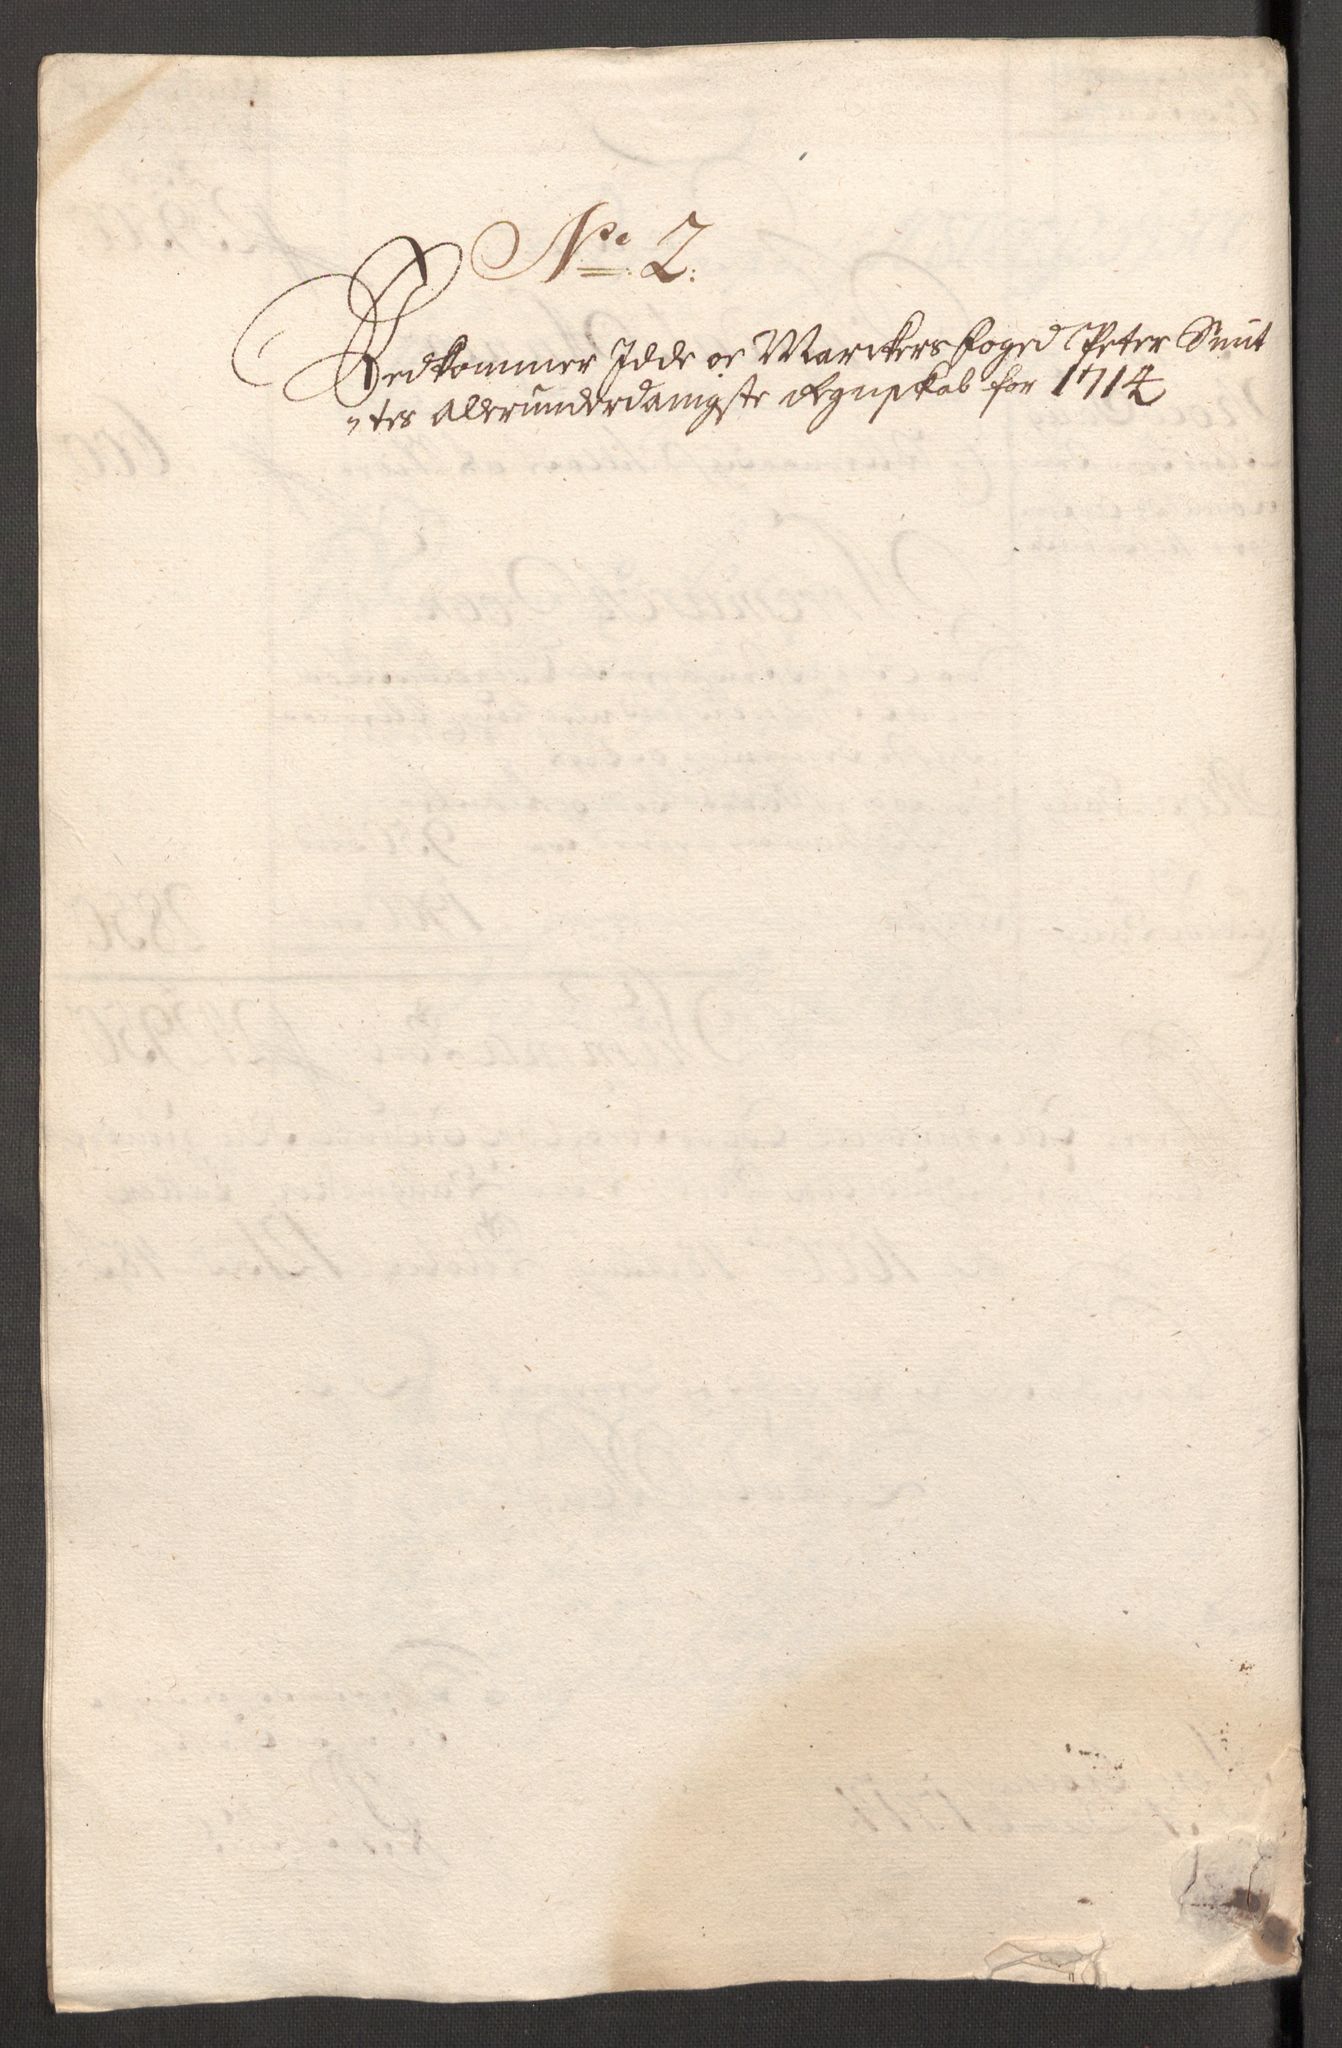 No. 2.
Vedkommer Idde oc Marckers foged Peter Smit
tes Allerunderdanigste Regnskab for 1714